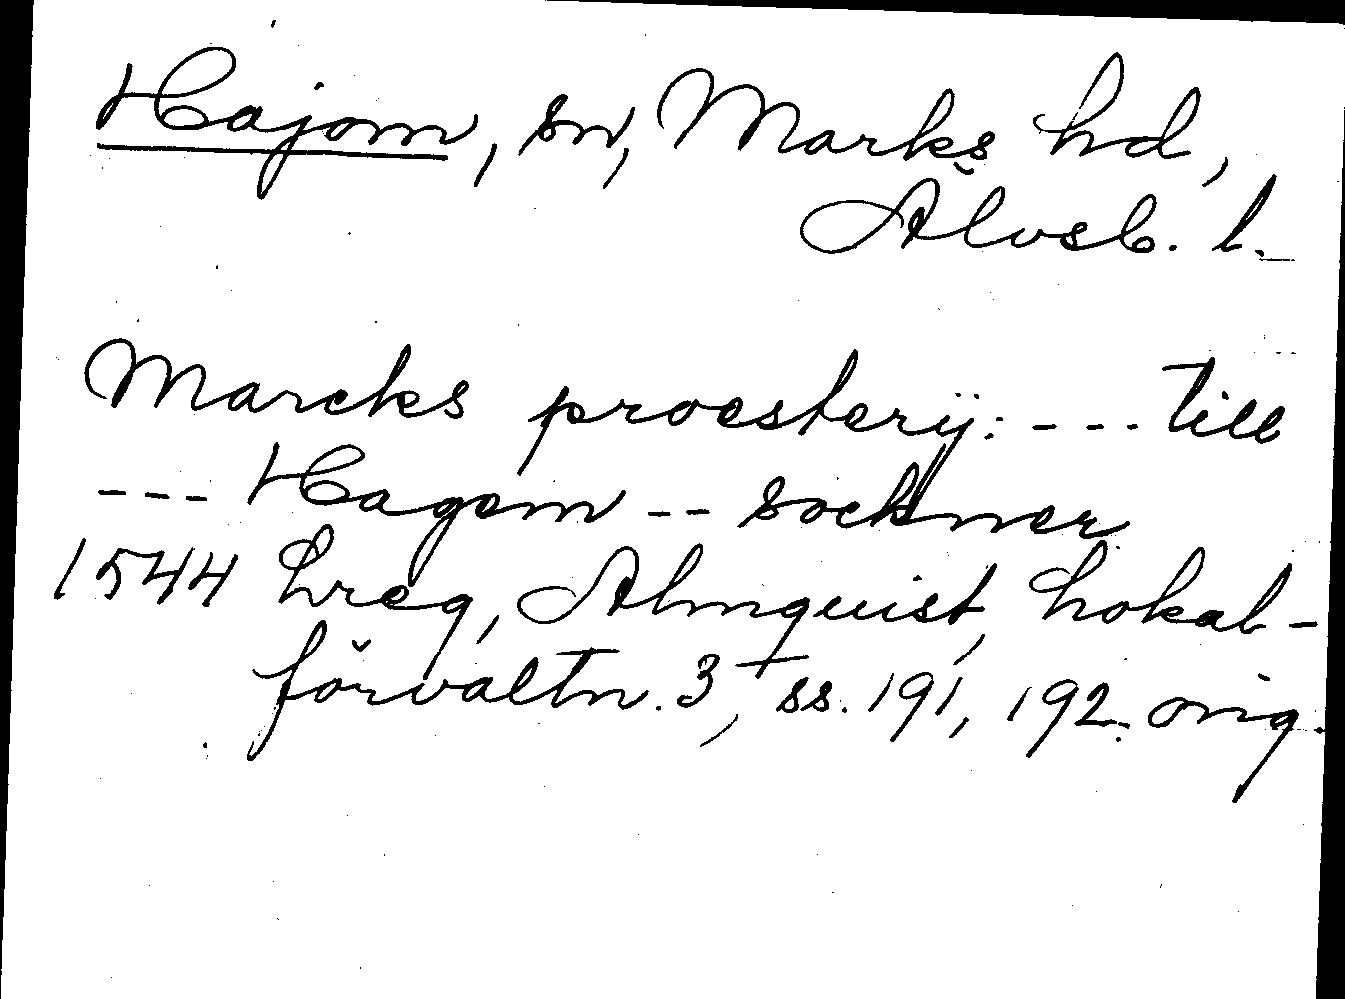 Hajom, sn, Marks hd,
Älvsb. l.
Marcks proesterij: --- till
--- Hagem -- sockner
1544 Lreg, Almquist, Lokal-
förvaltn. 3, ss. 191, 192. orig.